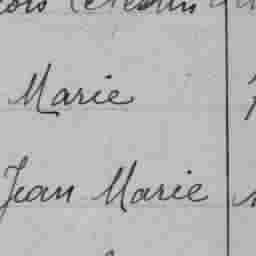 Marie
Jean Marie